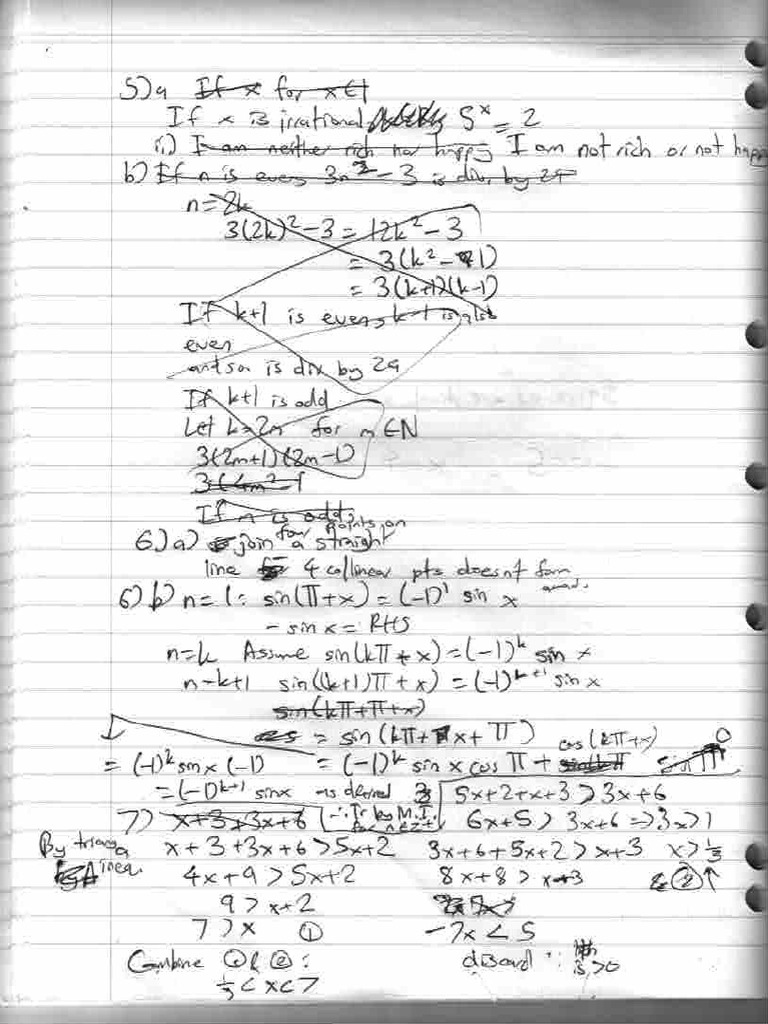 5) a If x for x ∈
If x is irrational 5^x = 2
ii) I am neither rich nor happy I am not rich or not happ
b) If n is even 3n² - 3 is div. by 24
n = 2k
3(2k)² - 3 = 12k² - 3
= 3(k² - 1)
= 3(k+1)(k-1)
If k+1 is even, k-1 is also
even
is div by 24
If k+1 is odd
Let k = 2m for m ∈ N
3(2m+1)(2m-1)
3(4m² - 1
If n is odd,
6) a) join four points on a straight
line 4 collinear pts doesn't form quad.
6) b) n = 1: sin(π + x) = (-1)^1 sin x
- sin x = RHS
n = k Assume sin(kπ + x) = (-1)^k sin x
n = k+1 sin((k+1)π + x) = (-1)^{k+1} sin x
sin(kπ + π + x)
= sin(kπ + x + π)
= (-1)^k sin x (-1) = (-1)^k sin x cos π + cos(kπ + x) sin π 0
= (-1)^{k+1} sin x as desired 5x+2+x+3 > 3x+6
∴ Tr by M.I. for n ∈ Z+
7) x+3+3x+6 6x+5 > 3x+6 ⇒ 3x > 1
By triang ineq. x+3+3x+6 > 5x+2 3x+6+5x+2 > x+3 x > 1/3
4x+9 > 5x+2 8x+8 > x+3 ② ↑
9 > x+2
7 > x ① -7x < 5
Combine ① & ②: discard ∵ is > 0
1/3 < x < 7